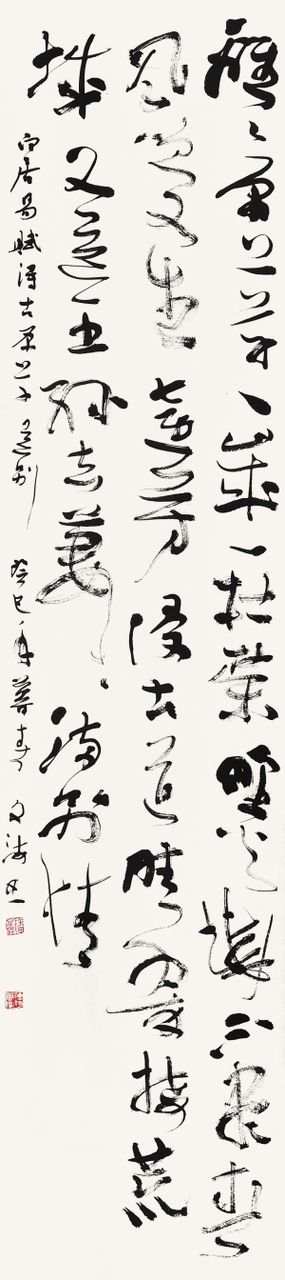 離〻原上草一歲一枯榮野火燒不盡春
風吹又生遠芳侵古道晴翠接荒
城又送王孫去萋〻滿別情
白居易賦得古原草送別 癸巳年暮春 文海